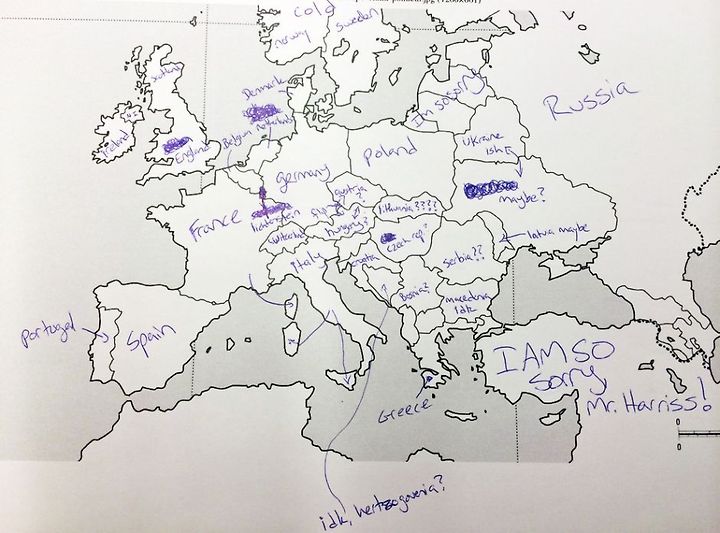 Cold
norway
Sweden
Scotland
Ireland
England
Denmark
Belgium
netherlands
Im so sorry
Russia
Ukraine
ish
maybe?
germany
Poland
France
lichtenstein
Switzerland
Austria
?
lithuania????
hungary?
Czech rep?
Serbia??
latvia maybe
Italy
Croatia
?
Bosnia?
macedonia
idk
Portugal
Spain
Greece
I AM SO
Sorry
Mr. Harriss!
0
0
idk, hertzogovenia?